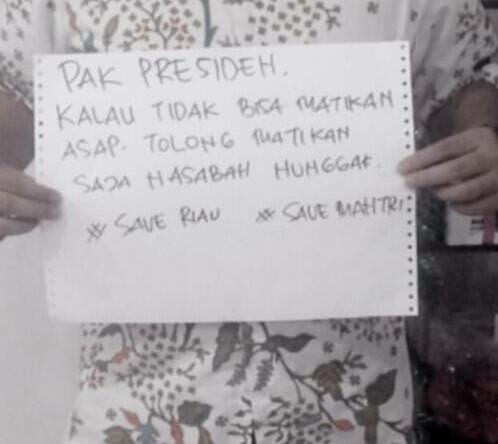 PAK PRESIDEN.
KALAU TIDAK BISA MATIKAN
ASAP. TOLONG MATIKAN
SAJA NASABAH NUNGGAK.
## SAVE RIAU ## SAVE MANTRI